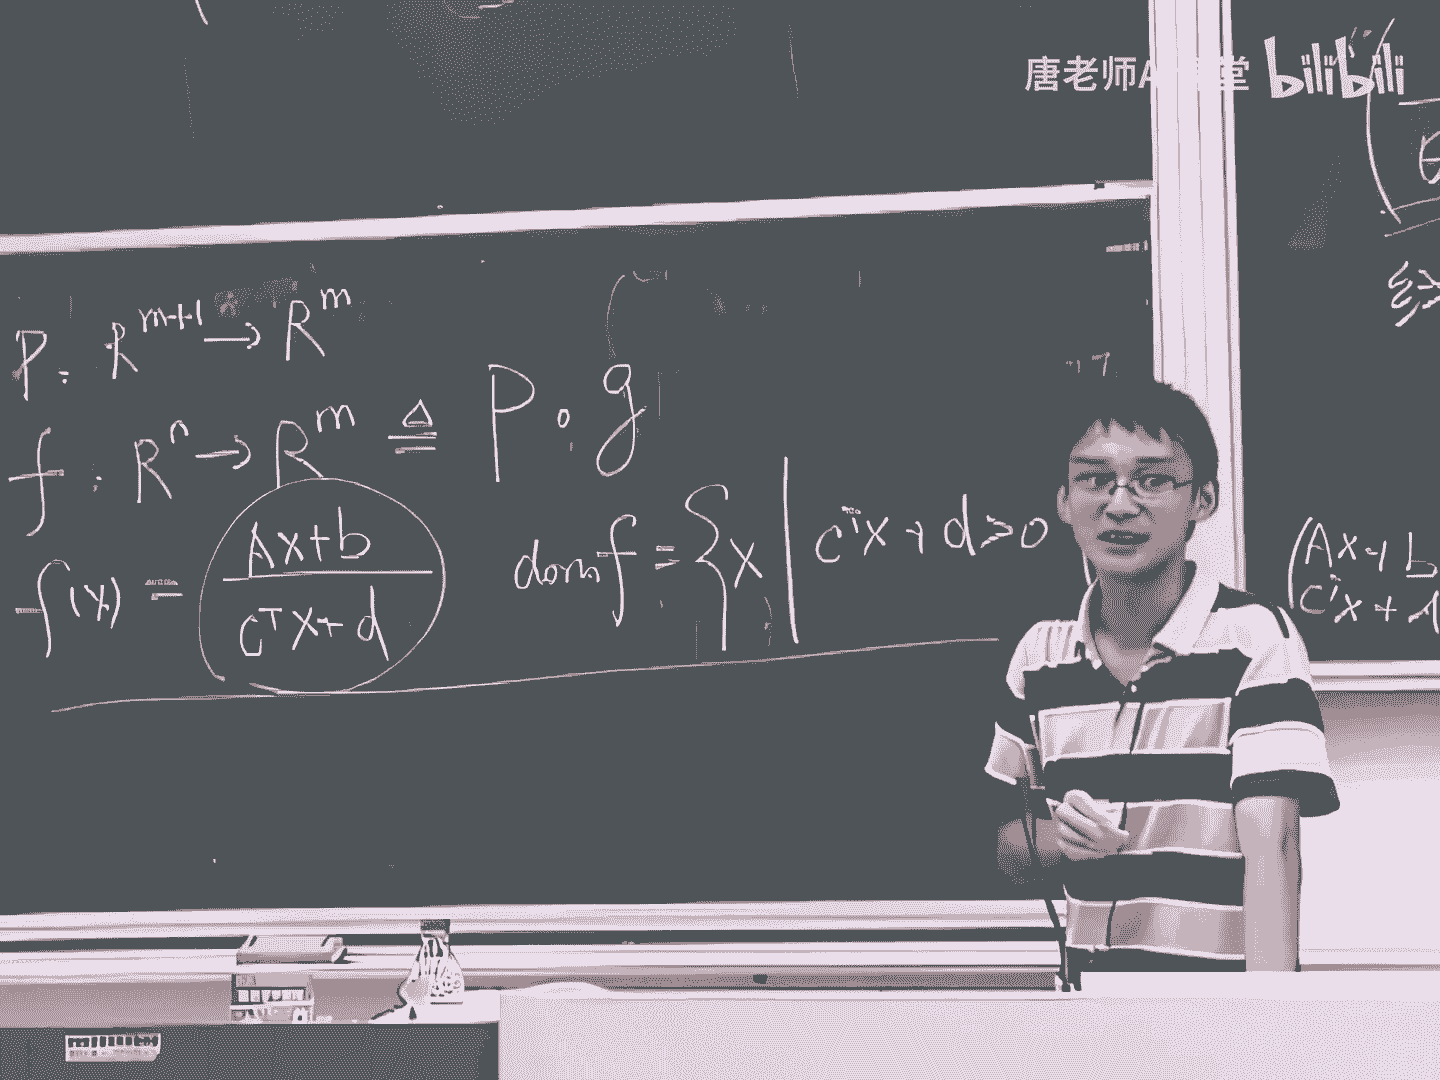 唐老师A 堂 bilibili
P: R^{m+1} → R^m
f: R^n → R^m ≜ P∘g
f(x) = \frac{Ax+b}{c^T x+d} dom f = {x | c^T x + d > 0
Ax+b
c^T x + d